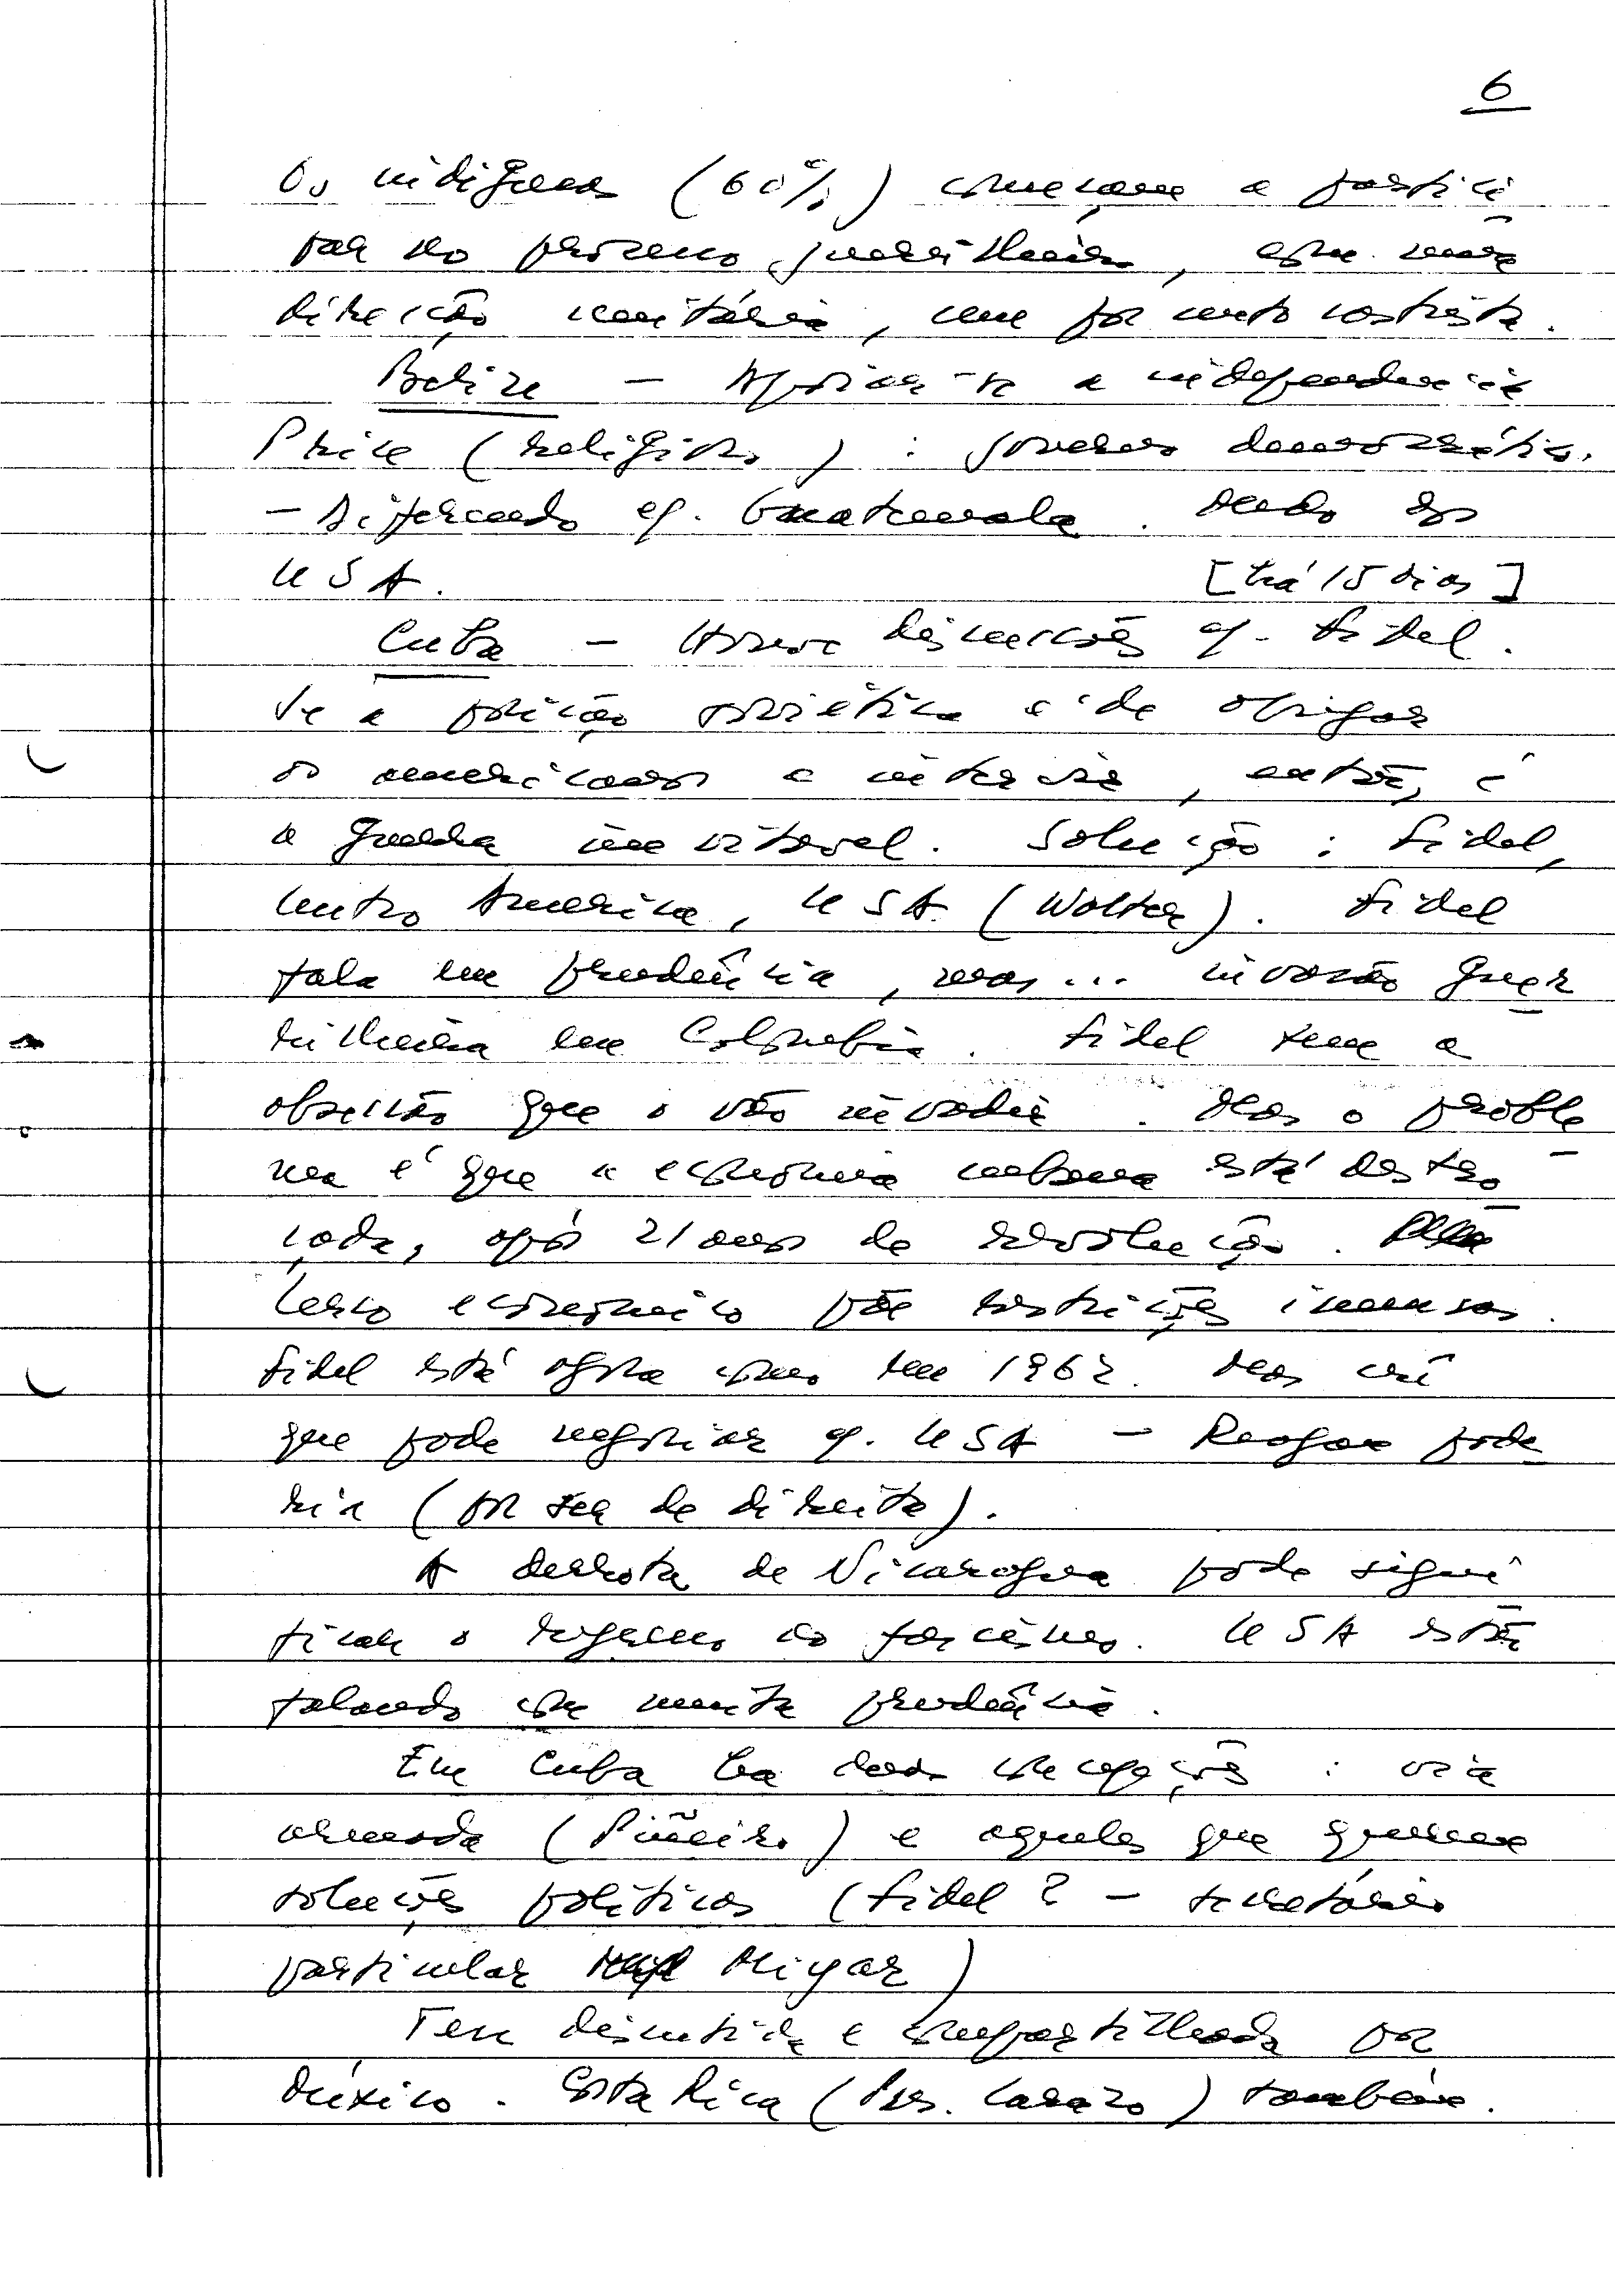 6
Os indígenas (60%) começam a partici
par no processo guerrilheiro, com uma
direção unitária, um por cento castrista.
Belize – Apoiar-se a independência
Price (religioso) : governo democrático.
– diferendo c/. Guatemala. Medo dos
USA. [há 15 dias]
Cuba – Houve discussões c/. Fidel.
Se a posição soviética é de obrigar
os americanos a intervir, então, é
a guerra inevitável. Solução : Fidel,
Centro America, USA (Wolter). Fidel
fala em prudência, mas... invasão guer
rilheira em Colombia. Fidel tem a
obsessão que o vão invadir. Mas o proble
ma é que a economia cubana está destro
çada, após 21 anos de revolução.
Cerco economico põe restrições imensas.
Fidel está agora como em 1962. Mas crê
que pode negociar c/. USA – Reagan pode
ria (por ser de direita).
A derrota de Nicaragua pode signi
ficar o regresso ao fascismo. USA estão
falando com muita prudência.
Em Cuba há duas concepções : via
armada (Piñeiro) e aqueles que querem
soluções políticas (Fidel ? – secretário
particular Miyar)
Tese discutida e compartilhada por
México. Costa Rica (Pres. Carazo) também.